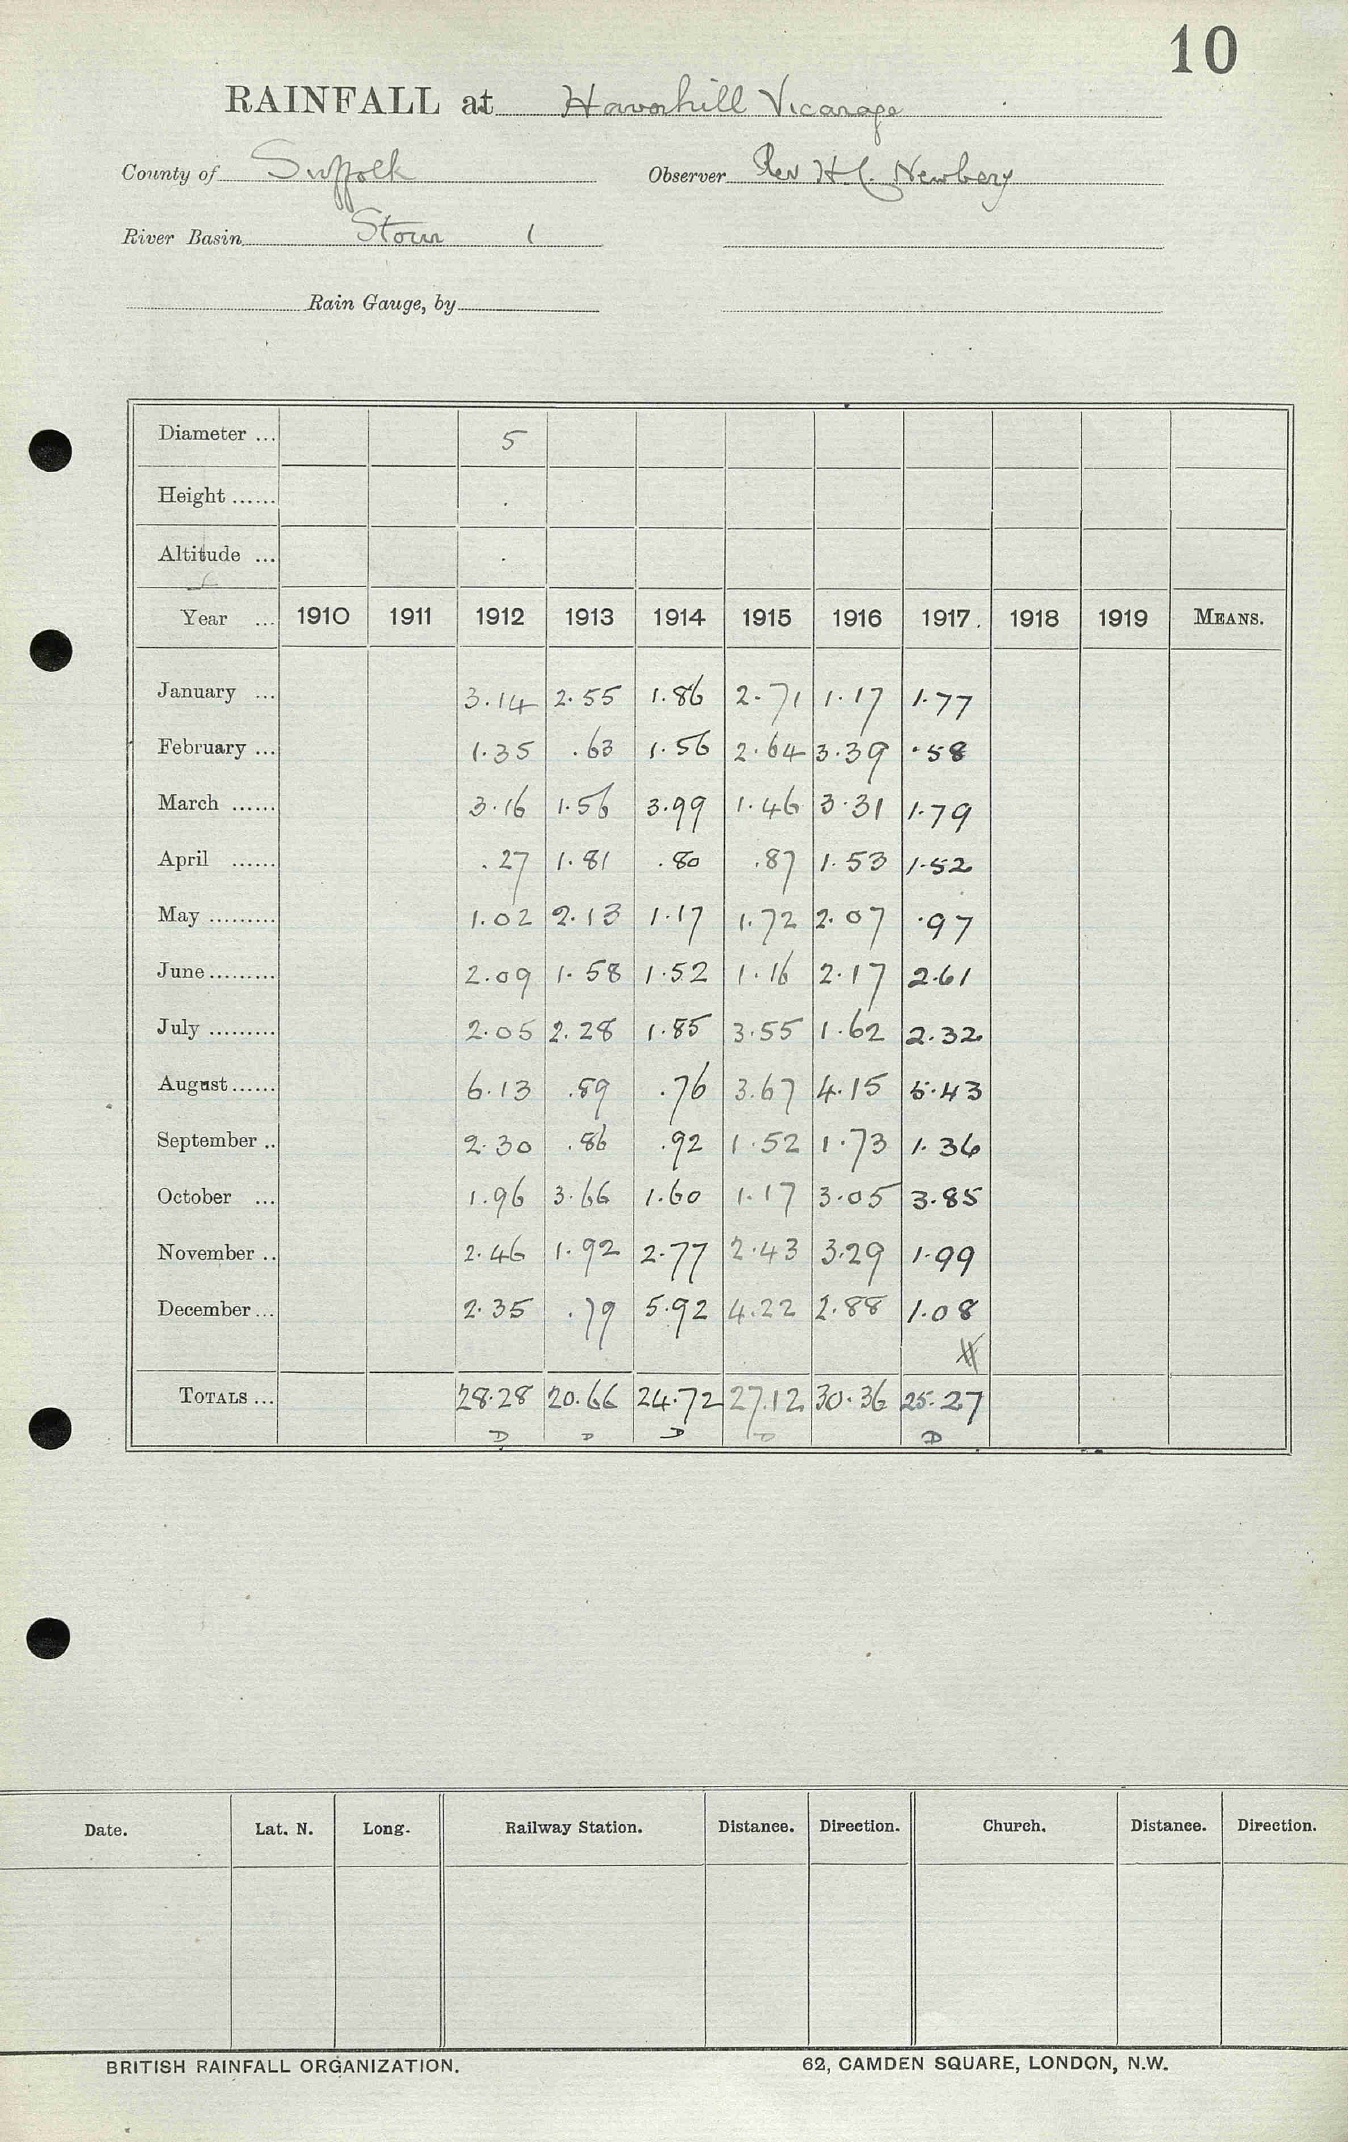 10
RAINFALL at Haverhill Vicarage
County of Suffolk Observer Rev H.C. Newbery
River Basin Stour 1
Rain Gauge, by
Diameter ... 5
Height ......
Altitude ...
Year ... 1910 1911 1912 1913 1914 1915 1916 1917. 1918 1919 MEANS.
January ... 3.14 2.55 1.86 2.71 1.17 1.77
February ... 1.35 .63 1.56 2.64 3.39 .58
March ...... 3.16 1.56 3.99 1.46 3.31 1.79
April ...... .27 1.81 .80 .87 1.53 1.52
May ......... 1.02 2.13 1.17 1.72 2.07 .97
June ......... 2.09 1.58 1.52 1.16 2.17 2.61
July ......... 2.05 2.28 1.85 3.55 1.62 2.32
August ...... 6.13 .89 .76 3.67 4.15 5.43
September .. 2.30 .86 .92 1.52 1.73 1.36
October ... 1.96 3.66 1.60 1.17 3.05 3.85
November .. 2.46 1.92 2.77 2.43 3.29 1.99
December ... 2.35 .79 5.92 4.22 2.88 1.08
TOTALS ... 28.28 20.66 24.72 27.12 30.36 25.27
D D D D D
Date. Lat. N. Long. Railway Station. Distance. Direction. Church. Distance. Direction.
BRITISH RAINFALL ORGANIZATION. 62, CAMDEN SQUARE, LONDON, N.W.